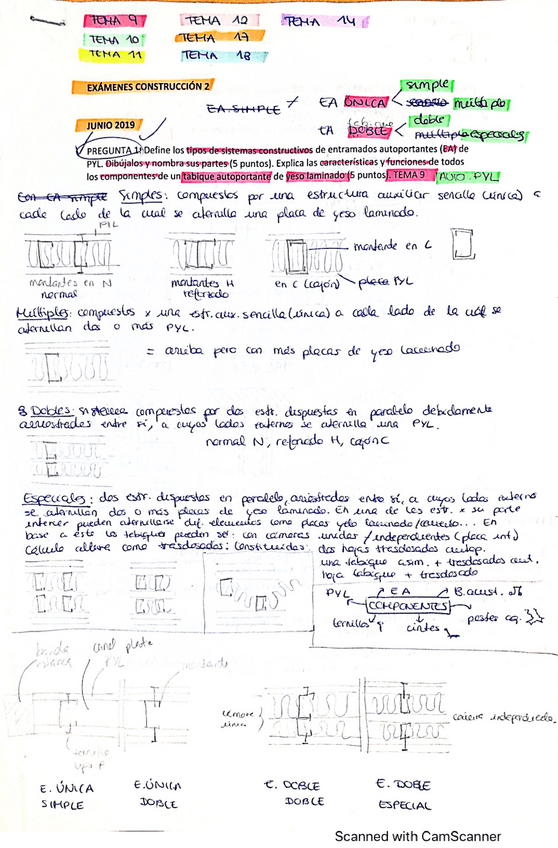 TEMA 9 TEMA 12 TEMA 14
TEMA 10 TEMA 17
TEMA 11 TEMA 18
EXÁMENES CONSTRUCCIÓN 2
EA SIMPLE ≠ EA ÚNICA simple
múltiple
JUNIO 2019
EA DOBLE doble
especiales
PREGUNTA 1: Define los tipos de sistemas constructivos de entramados autoportantes (EA) de
PYL. Dibújalos y nombra sus partes (5 puntos). Explica las características y funciones de todos
los componentes de un tabique autoportante de yeso laminado (5 puntos). TEMA 9 AUTO. PYL
Simples: compuestos por una estructura auxiliar sencilla (única) a
cada lado de la cual se atornilla una placa de yeso laminado.
PYL
montante en C
montantes en N montantes H en C (cajón) placa PYL
normal reforzado
Múltiples: compuestos x una estr. aux. sencilla (única) a cada lado de la cual se
atornillan dos o más PYL.
= arriba pero con más placas de yeso laminado
Dobles: compuestos por dos estr. dispuestas en paralelo debidamente
arriostradas entre sí, a cuyos lados externos se atornilla una PYL.
normal N, reforzado H, cajón C
Especiales: dos estr. dispuestas en paralelo, arriostradas entre sí, a cuyos lados externos
se atornillan dos o más placas de yeso laminado. En una de las estr. x su parte
interior pueden atornillarse dif. elementos como placas yeso laminado/ ... En
base a esto los tabiques pueden ser: con cámaras unidas / independientes (placa int.)
como trasdosados: constituidos: dos hojas trasdosados autop.
una tabique asim. + trasdosados aut.
hoja tabique + trasdosado
PYL EA B. acust.
COMPONENTES
tornillos cintas pastas ag.
banda canal
PYL montante
tornillo
tipo P
cámara
única
cámara independiente
E. ÚNICA E. ÚNICA E. DOBLE E. DOBLE
SIMPLE DOBLE DOBLE ESPECIAL
Scanned with CamScanner